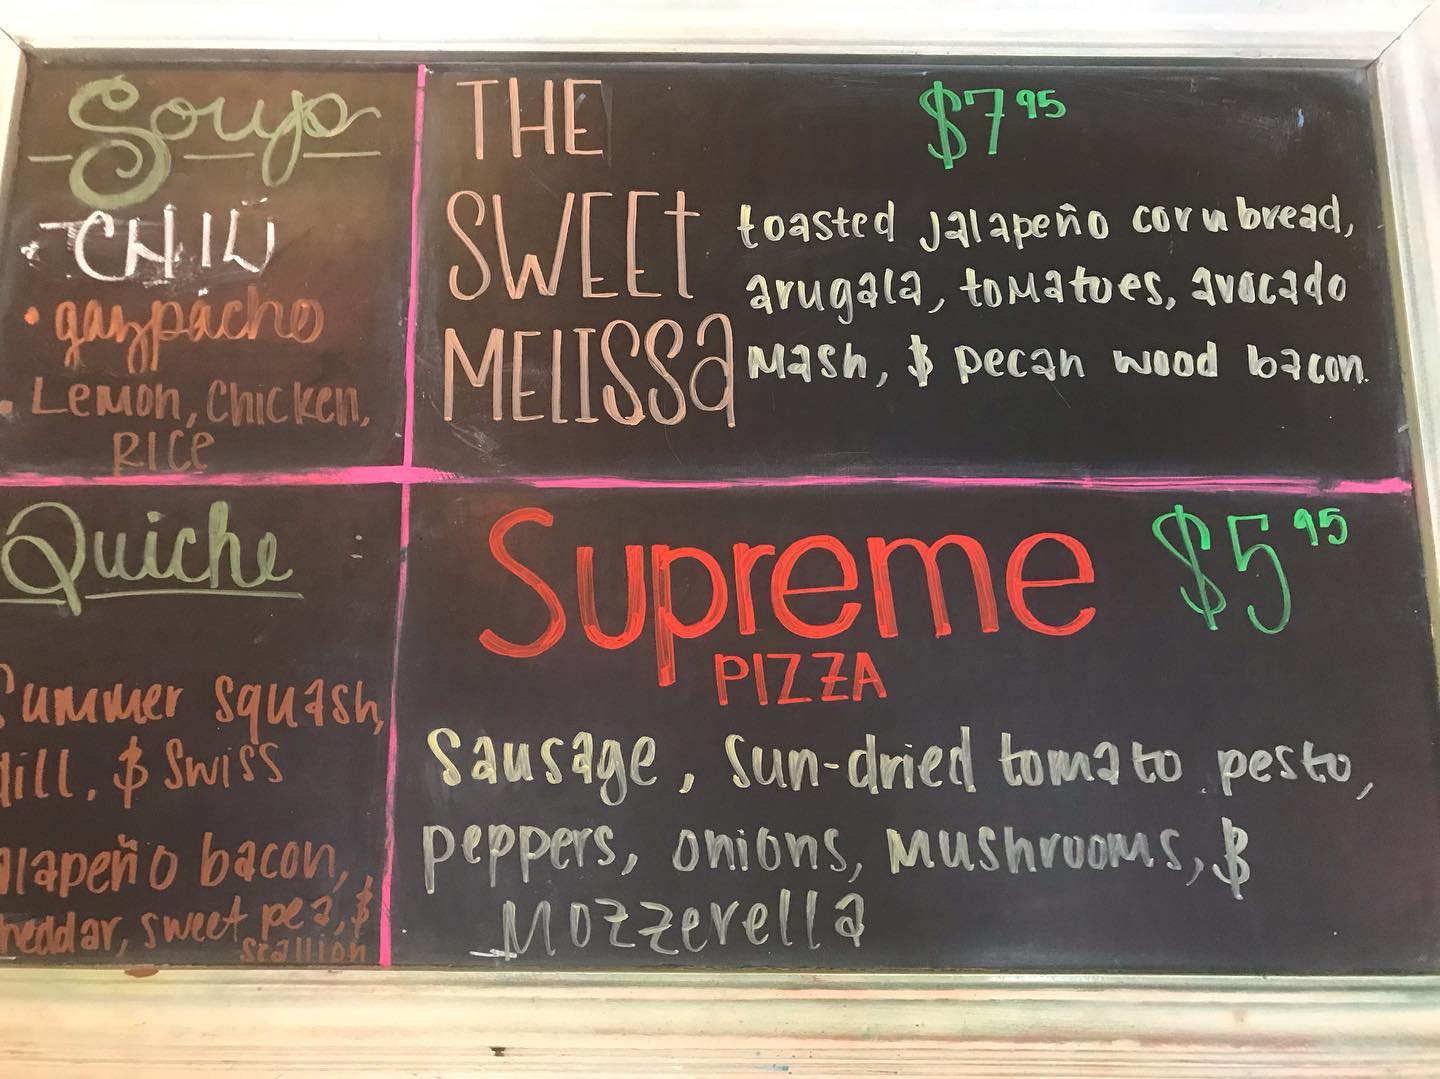 Soup
CHILI
• gazpacho
• Lemon, Chicken,
RICE
THE
SWEET
MELISSA
$7 95
toasted jalapeño cornbread,
arugala, tomatoes, avocado
mash, & pecan wood bacon.
Quiche
Summer squash,
dill, & Swiss
jalapeño bacon,
cheddar, sweet pea, &
scallion
Supreme
PIZZA
$5 95
Sausage, sun-dried tomato pesto,
peppers, onions, mushrooms, &
Mozzerella